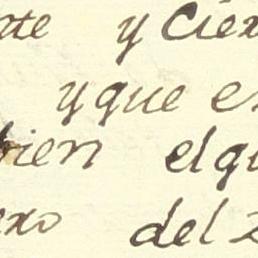 te y Cier
y que es
bien el qu
exo del 2